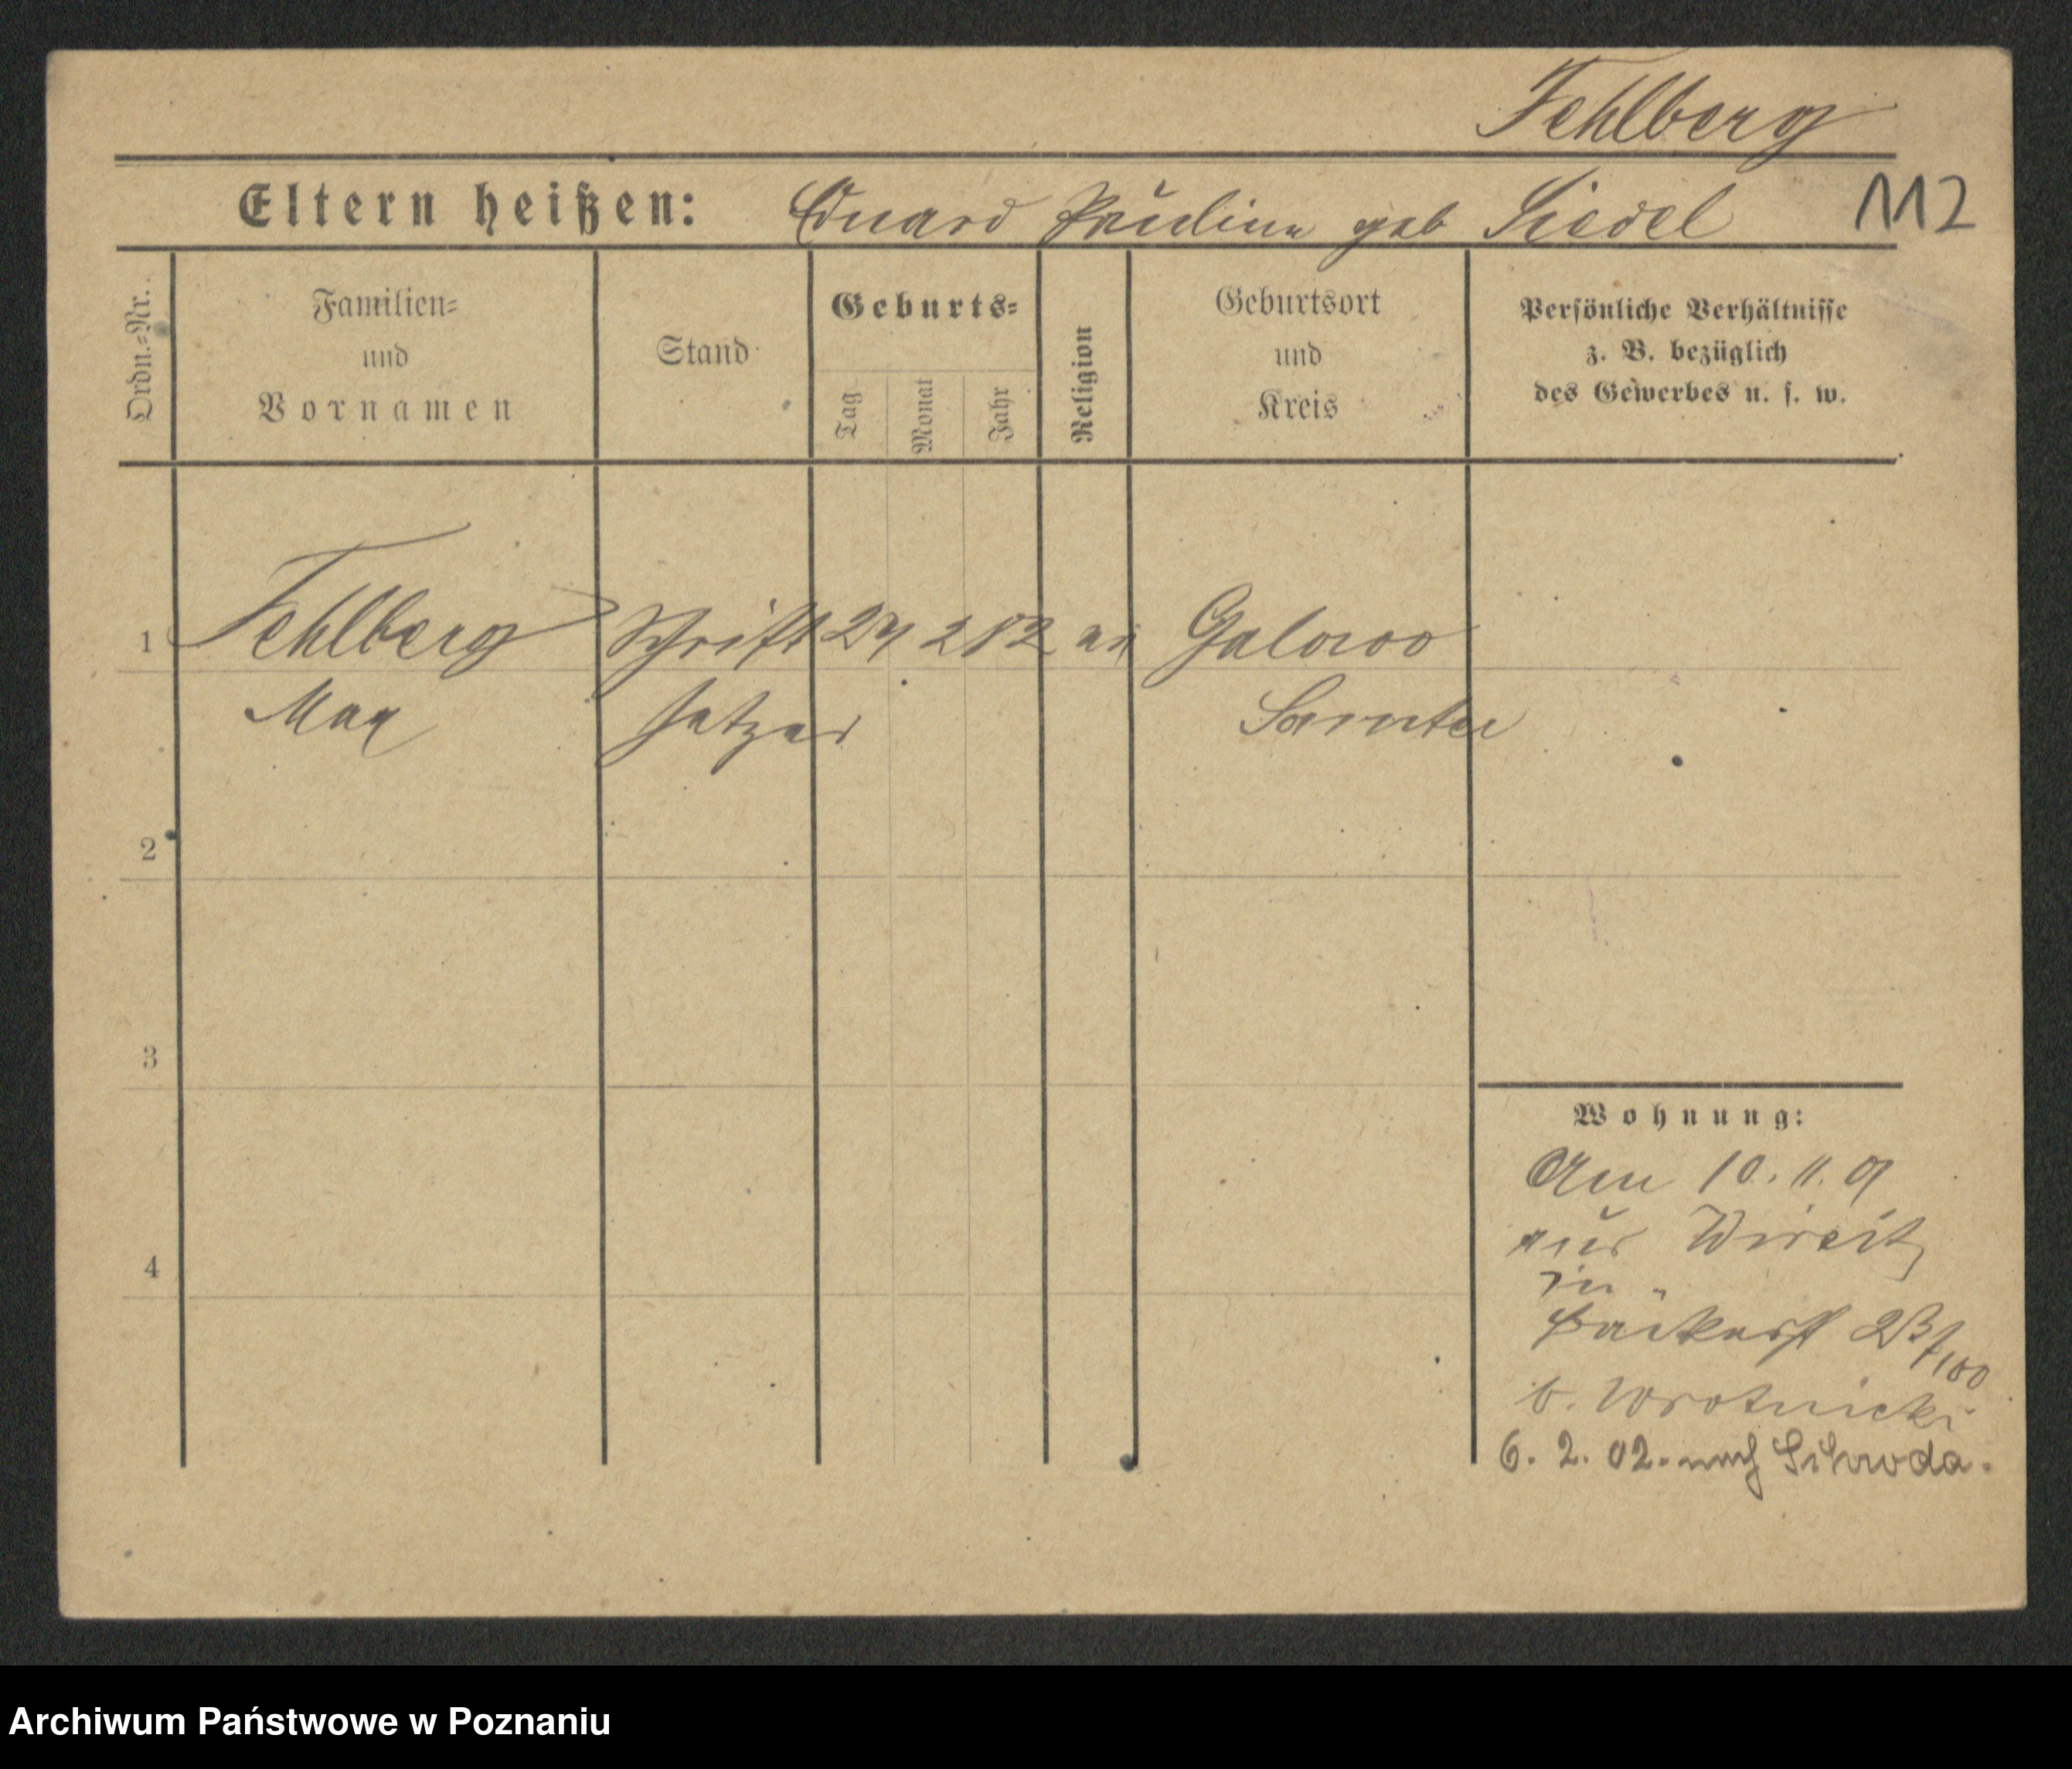 Fehlberg
Eltern heißen: Eduard Pauline geb Siedel 112
Ordn.-Nr.
Familien-
und
Vornamen
Stand
Geburts-
Tag
Monat
Jahr
Religion
Geburtsort
und
Kreis
Persönliche Verhältnisse
z. B. bezüglich
des Gewerbes u. s. w.
1 Fehlberg Schrift 24 2 82 ev Galowo
Max setzer Samter
2
3
4
Wohnung:
Am 10. 11. 01
aus Wirsitz
in
Bäckerst 23/100
b. Wrotnicki
6. 2. 02. nach Schroda.
Archiwum Państwowe w Poznaniu